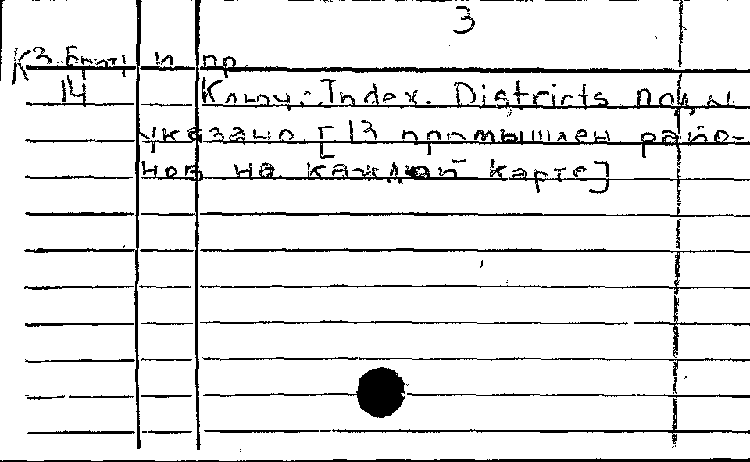 3
К 3. Брит и пр
14 Ключ: Index. Districts под. и
указано [13 промышлен райо-
нов на каждой карте]